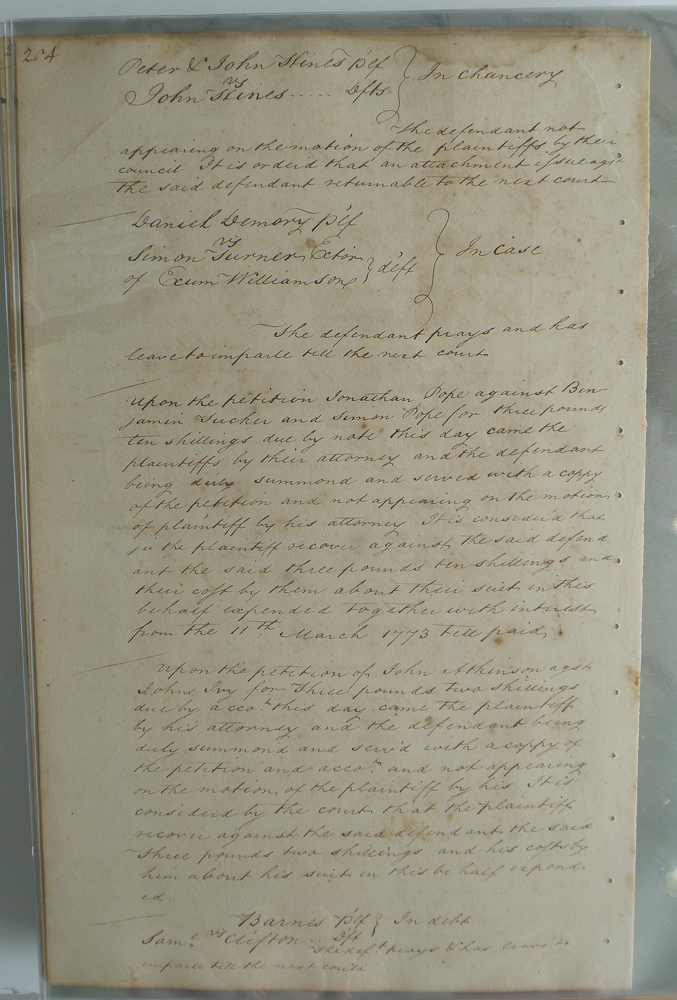 204
Peter & John Hines plf } In Chancery
vs
John Hines ..... Dfts
The defendant not
appearing on the motion of the plaintiffs by their
council It is orderd that an attachment issue agst
the said defendant returnable to the next court
Daniel Demory plf
vs
Simon Turner Ector } deft } In case
of Exum Williamson
The defendant prays and has
leave to imparle till the next court
Upon the petition Jonathan Pope against Ben-
jamin Tucker and Simon Pope for three pounds
ten shillings due by note this day came the
plaintiffs by their attorney and the defendant
being duly summond and served with a coppy
of the petition and not appearing on the motion
of plaintiff by his attorney It is considerd that
the plaintiff recover against the said defend
ant the said three pounds ten shillings and
their cost by them about their suit in this
behalf expended together with interest
from the 11th March 1773 till paid
Upon the petition of John Atkinson agst
Johns Ivy for Three pounds two shillings
due by accot this day came the plaintiff
by his attorney and the defendant being
duly summond and serv'd with a coppy of
the petition and accot and not appearing
on the motion of the plaintiff by his It is
considerd by the court that the plaintiff
recover against the said defendant the said
Three pounds two shillings and his costs by
him about his suit in this behalf expend
ed.
Barnes Plf } In debt
vs
Saml Clifton .. Dft
The deft prays & has leave to
imparle till the next court